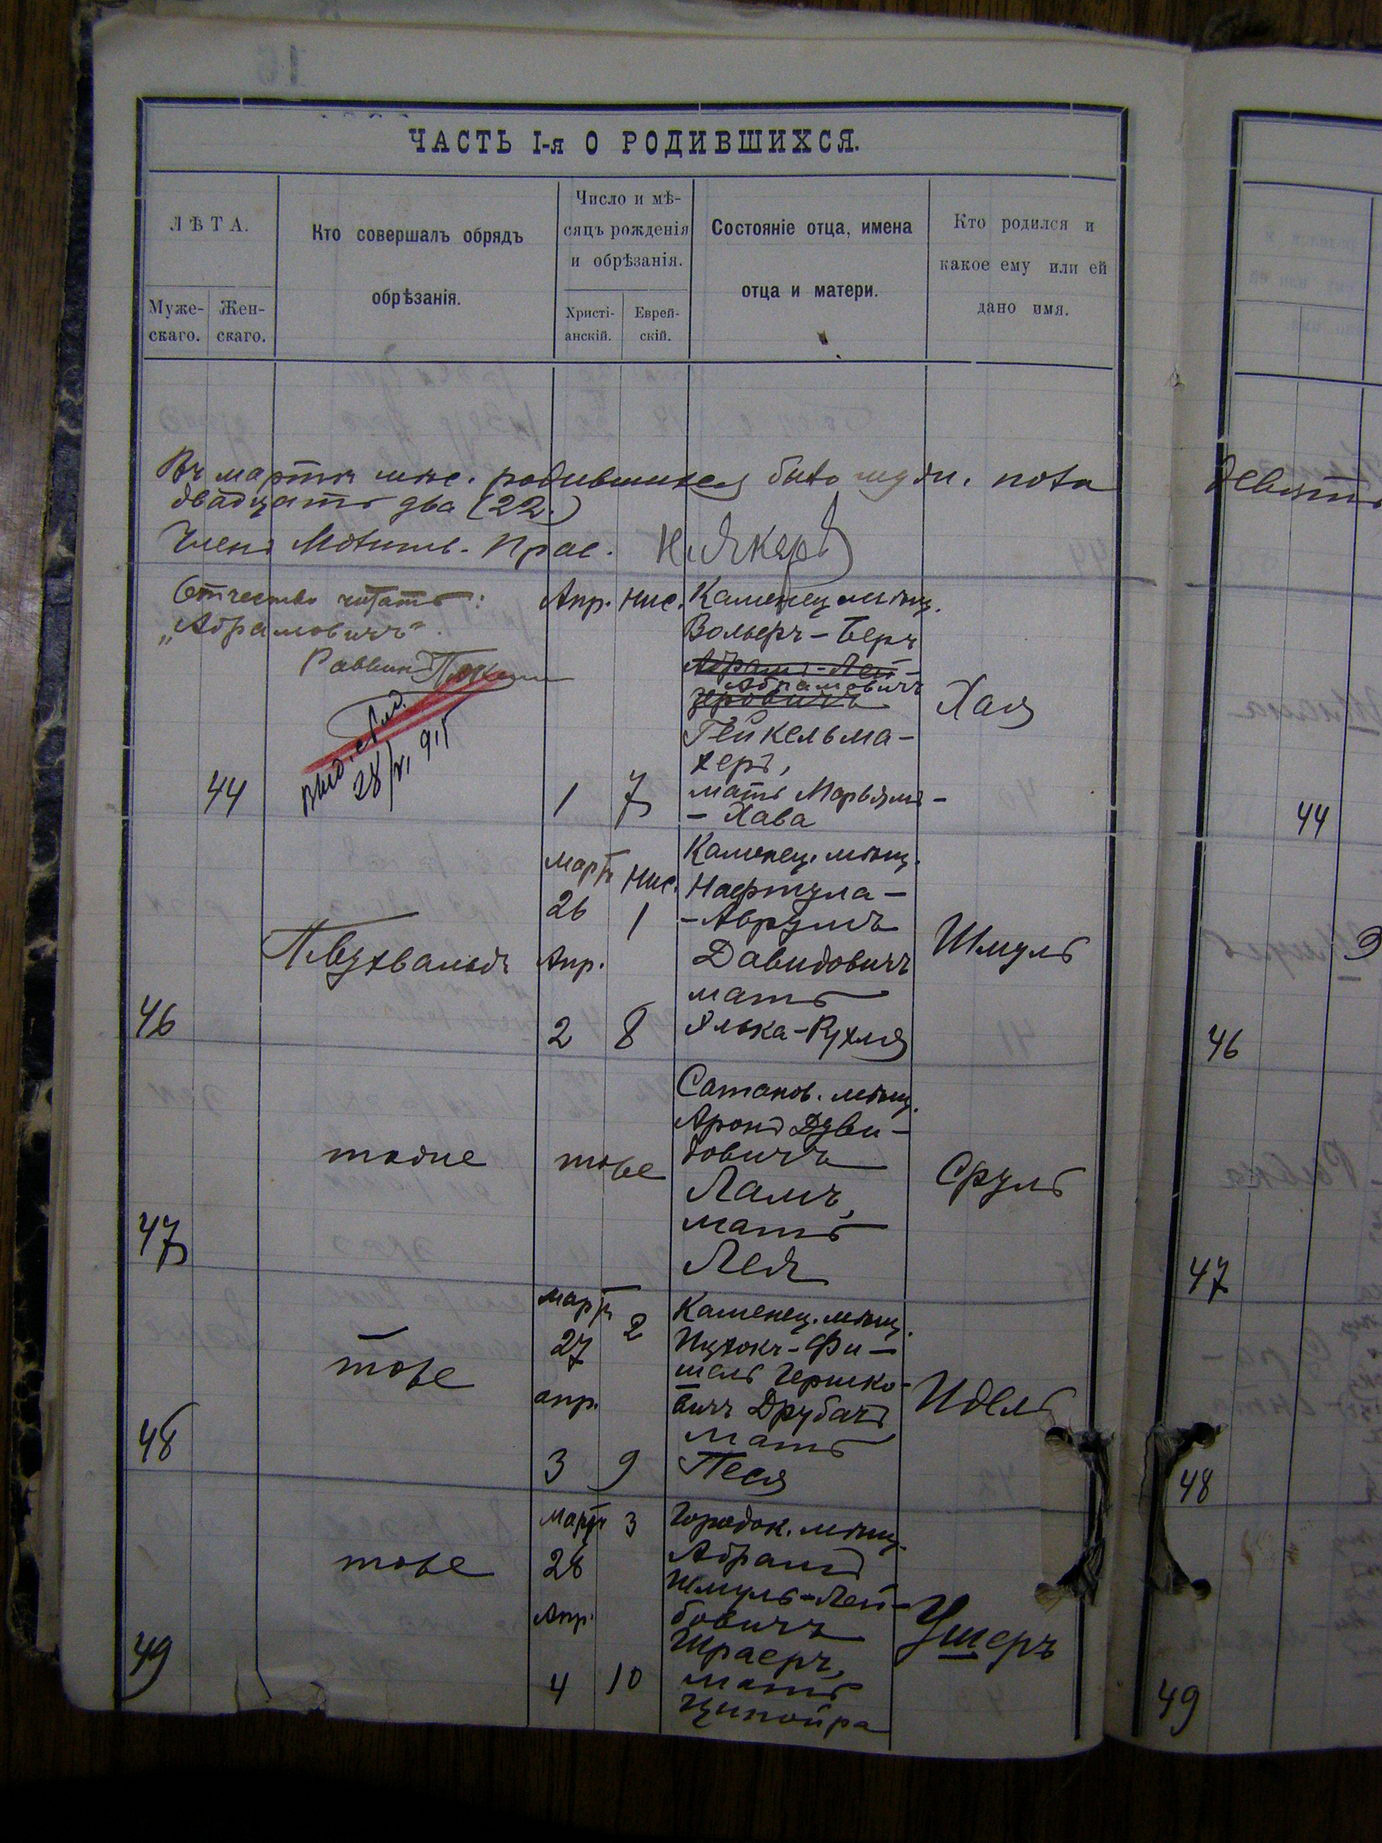 ЧАСТЬ I-я О РОДИВШИХСЯ.
ЛѢТА.
Муже-
скаго.
Жен-
скаго.
Кто совершалъ обрядъ
обрѣзанія.
Число и мѣ-
сяцъ рожденія
и обрѣзанія.
Христі-
анскій.
Еврей-
скій.
Состояніе отца, имена
отца и матери.
Кто родился и
какое ему или ей
дано имя.
Въ мартѣ мѣс. родившихся было муж. пола
двадцать два (22.)
Членъ Молитв. Прав. Н. Якеръ
Отчество читать:
„Абрамовичъ“.
Раввинъ
28/VI 915
44
Апр. Нис.
1 7
Каменец. мѣщ.
Вольфъ-Беръ
Абрамъ-Лей-
зеровичъ
Абрамовичъ
Гейкельма-
херъ,
мать Марьямъ-
- Хава
Хая
46
П. Бухвальдъ
мартъ Нис.
26 1
Апр.
2 8
Каменец. мѣщ.
Нафтула-
-Аврумъ
Давидовичъ
мать
Элька-Рухля
Шмуль
47
тоже
тоже
Сатанов. мѣщ.
Аронъ Дуви-
довичъ
Ламъ,
мать
Лея
Сруль
48
тоже
мартъ 2
27
апр.
3 9
Каменец. мѣщ.
Ицхокъ-Фи-
шель Гершко-
вичъ Друбачъ
мать
Песя
Идель
49
тоже
мартъ 3
28
Апр.
4 10
Городок. мѣщ.
Абрамъ
Шмуль-Лей-
бовичъ
Шраеръ,
мать
Ципойра
Ушеръ
44
46
47
48
49